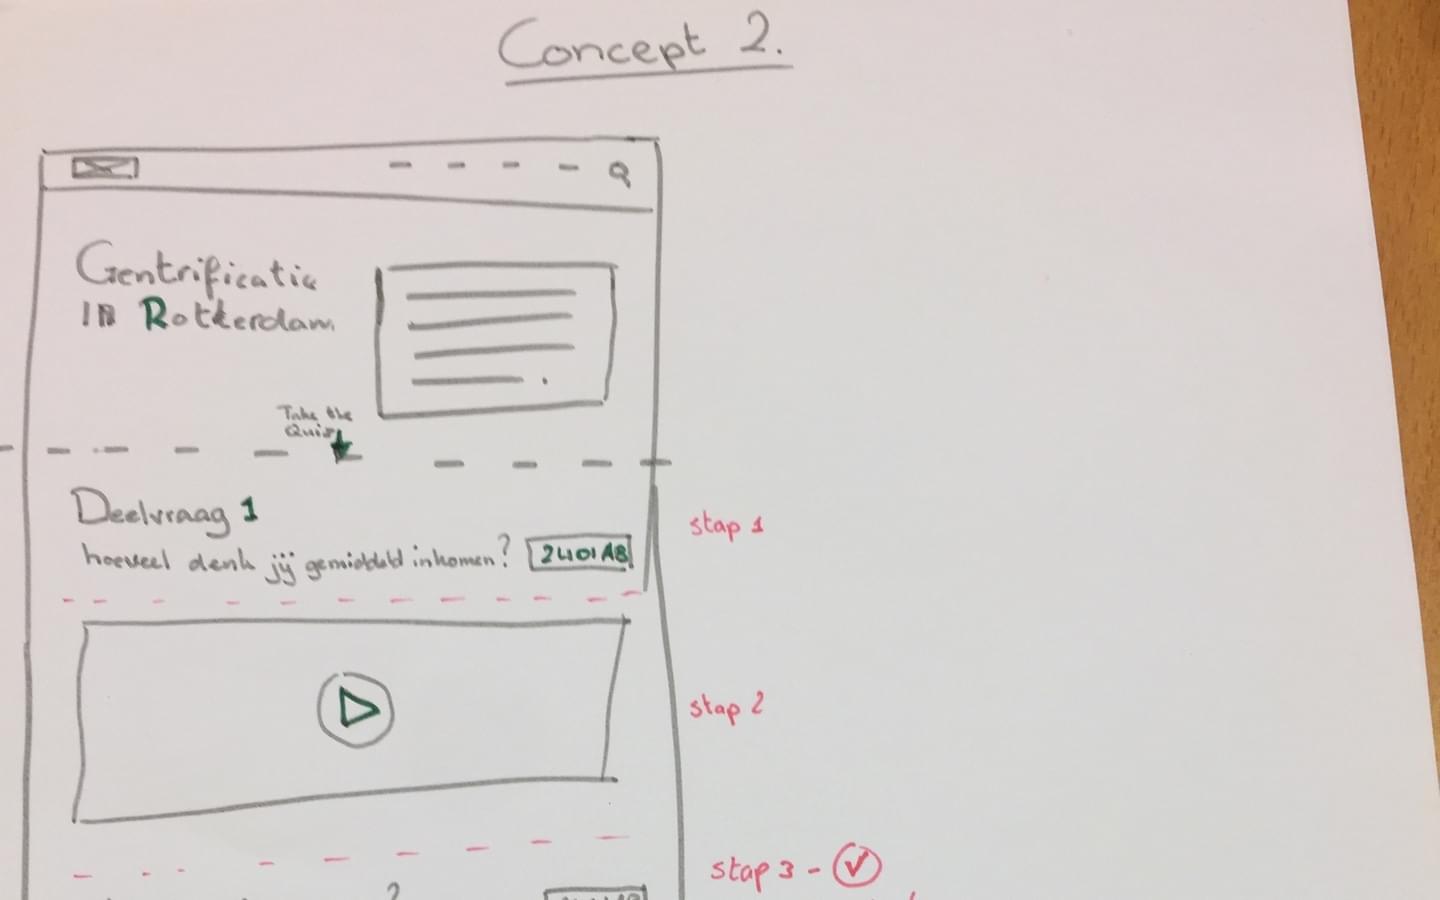 Concept 2.
Gentrificatie
in Rotterdam
Take the
Quiz
Deelvraag 1
hoeveel denk jij gemiddeld inkomen?
2401AB
stap 1
stap 2
stap 3 -
?